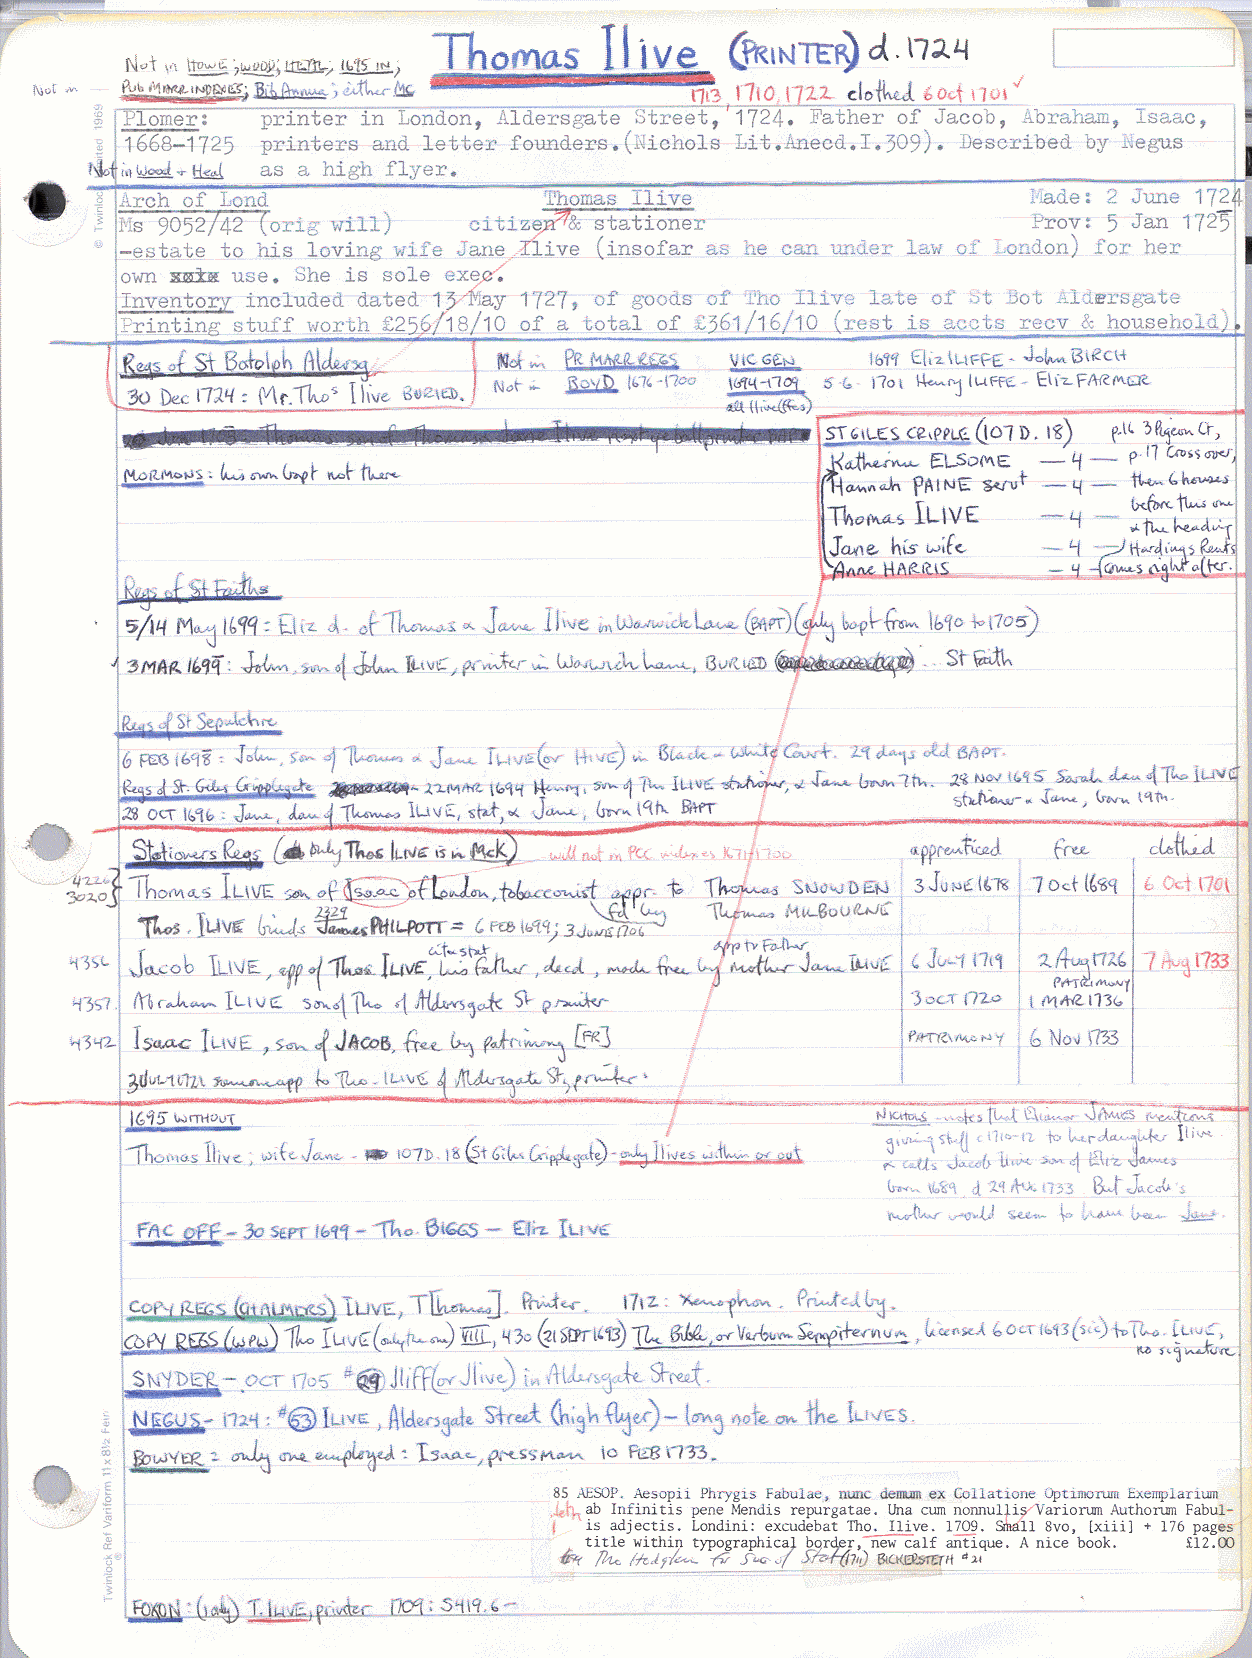 Thomas Ilive (PRINTER) d. 1724
Not in HOWE; WOOD; HEAL; 1695 IN;
Not in — PUB MARR INDEXES; Bib Annua; either Mc
1713, 1710, 1722 clothed 6 Oct 1701 ✓
Plomer: printer in London, Aldersgate Street, 1724. Father of Jacob, Abraham, Isaac,
1668-1725 printers and letter founders.(Nichols Lit.Anecd.I.309). Described by Negus
Not in Wood + Heal as a high flyer.
Arch of Lond Thomas Ilive Made: 2 June 1724
Ms 9052/42 (orig will) citizen & stationer Prov: 5 Jan 1725
-estate to his loving wife Jane Ilive (insofar as he can under law of London) for her
own use. She is sole exec.
Inventory included dated 13 May 1727, of goods of Tho Ilive late of St Bot Aldersgate
Printing stuff worth £256/18/10 of a total of £361/16/10 (rest is accts recv & household).
Regs of St Botolph Aldersg Not in PR MARR REGS VIC GEN 1699 Eliz ILIFFE - John BIRCH
30 Dec 1724: Mr. Thos Ilive BURIED. Not in BOYD 1676-1700 1694-1709 5-6- 1701 Henry ILIFFE - Eliz FARMER
all Ilive(ffes)
MORMONS: his own bapt not there
ST GILES CRIPPLE (107 D. 18) p.16 3 Pigeon Ct,
Katherine ELSOME — 4 — p.17 Cross over,
Hannah PAINE servt — 4 — then 6 houses
Thomas ILIVE — 4 — before this one
& the heading
Jane his wife — 4 — Hardings Rents
Anne HARRIS — 4 — comes right after.
Regs of St Faiths
5/14 May 1699: Eliz d. of Thomas & Jane Ilive in Warwick Lane (BAPT) (only bapt from 1690 to 1705)
3 MAR 1699: John, son of John ILIVE, printer in Warwick Lane, BURIED ... St Faith
Regs of St Sepulchre
6 FEB 1698: John, son of Thomas & Jane ILIVE (or HIVE) in Black & White Court. 29 days old BAPT.
Regs of St. Giles Cripplegate 22 MAR 1694 Henry, son of Tho ILIVE stationer, & Jane born 7th. 28 NOV 1695 Sarah dau of Tho ILIVE
stationer & Jane, born 19th.
28 OCT 1696: Jane, dau of Thomas ILIVE, stat, & Jane, born 19th BAPT
Stationers Regs (only Thos ILIVE is in McK) will not in PCC indexes 1671-1700 apprenticed free clothed
4226
3020 } Thomas ILIVE son of Isaac of London, tobacconist appr. to Thomas SNOWDEN 3 JUNE 1678 7 Oct 1689 6 Oct 1701
fd by Thomas MILBOURNE
2329
Thos. ILIVE binds James PHILPOTT = 6 FEB 1699; 3 JUNE 1706
citn stat app to Father
4356 Jacob ILIVE, app of Thos ILIVE, his father, decd, made free by mother Jane ILIVE 6 JULY 1719 2 Aug 1726 7 Aug 1733
PATRIMONY
4357. Abraham ILIVE son of Tho of Aldersgate St printer 3 OCT 1720 1 MAR 1736
4342 Isaac ILIVE, son of JACOB, free by patrimony [FR] PATRIMONY 6 Nov 1733
3 JULY 1721 someone app to Tho. ILIVE of Aldersgate St, printer.
1695 WITHOUT
Thomas Ilive; wife Jane - 107 D. 18 (St Giles Cripplegate) - only Ilives within or out
NICHOLS - notes that Elianor JAMES mentions
giving stuff c1710-12 to her daughter Ilive
& calls Jacob Ilive son of Eliz James
born 1689, d 29 Aug 1733 But Jacob's
mother would seem to have been Jane.
FAC OFF - 30 SEPT 1699 - Tho. BIGGS - Eliz ILIVE
COPY REGS (CHALMERS) ILIVE, T[homas]. Printer. 1712: Xenophon. Printed by.
COPY REGS (WPW) Tho ILIVE (only the one) VIII, 430 (21 SEPT 1693) The Bible, or Verbum Sempiternum, licensed 6 OCT 1693 (sic) to Tho. ILIVE,
no signature.
SNYDER - OCT 1705 #29 Iliff (or Ilive) in Aldersgate Street.
NEGUS - 1724: #53 ILIVE, Aldersgate Street (high flyer) - long note on the ILIVES.
BOWYER = only one employed: Isaac, pressman 10 FEB 1733.
85 AESOP. Aesopii Phrygis Fabulae, nunc demum ex Collatione Optimorum Exemplarium
ab Infinitis pene Mendis repurgatae. Una cum nonnullis Variorum Authorum Fabul-
is adjectis. Londini: excudebat Tho. Ilive. 1709. Small 8vo, [xiii] + 176 pages
title within typographical border, new calf antique. A nice book. £12.00
for Stat (1711) BICKERSTETH #21
FOXON: (1 only) T. ILIVE, printer 1709: S419.6 -
© Twinlock Limited 1969
Twinlock Ref Variform 11 x 8½ Feint